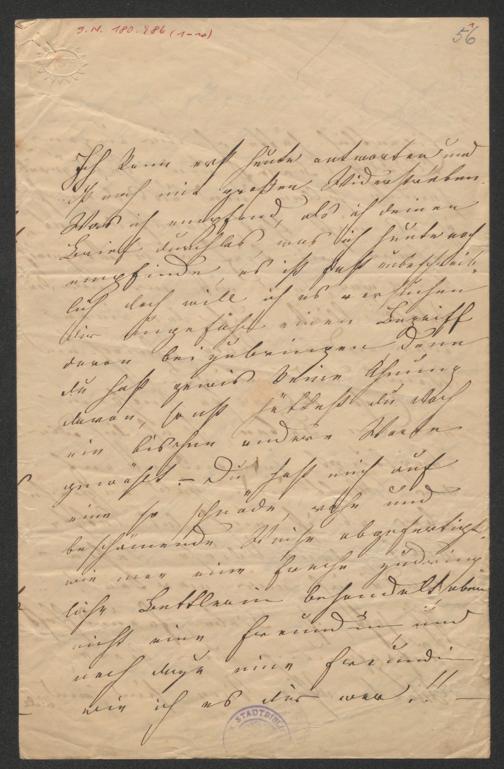 I.N. 180.286 (1-10)
56
Ich kann erst heute antworten und
ist noch mit großem Widerstreben.
Was ich empfand, als ich deinen
Brief durchlas was ich heute noch
empfinde, es ist fast unbeschreib-
lich doch will ich es versuchen
dir ungefähr einen Begriff
davon beizubringen denn
du hast gewis keine Ahnung
davon, sonst hättest du doch
ein bischen andere Worte
gewählt. – Du hast mich auf
eine so schnöde, rohe und
beschämende Weise abgefertigt,
wie man eine freche zudring
liche Bettlerin behandelt, aber
nicht eine Freundin und
noch dazu eine Freundin
wie ich es dir war!!! –
STADTBIBL